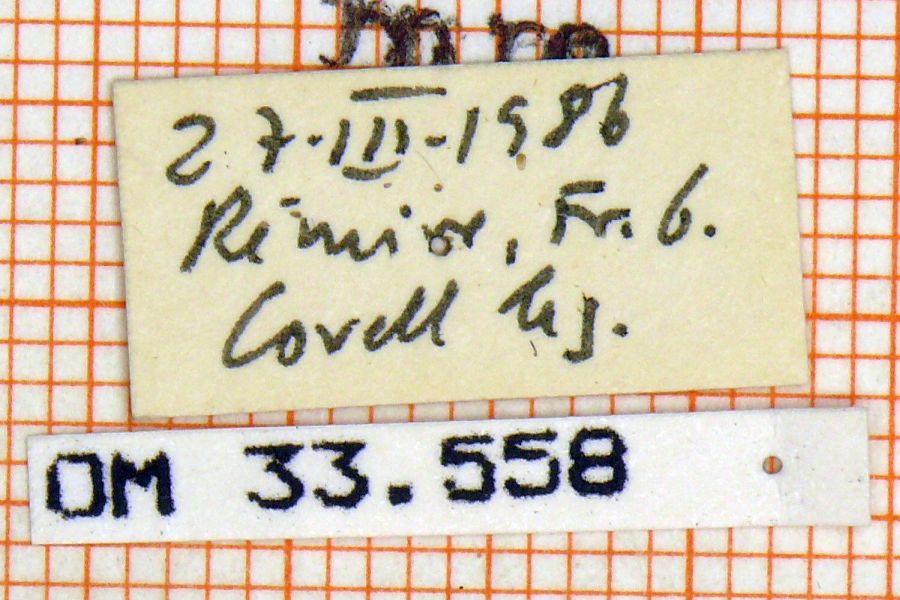 27-III-1986
Rémire, Fr. G.
Covell leg.
OM 33.558